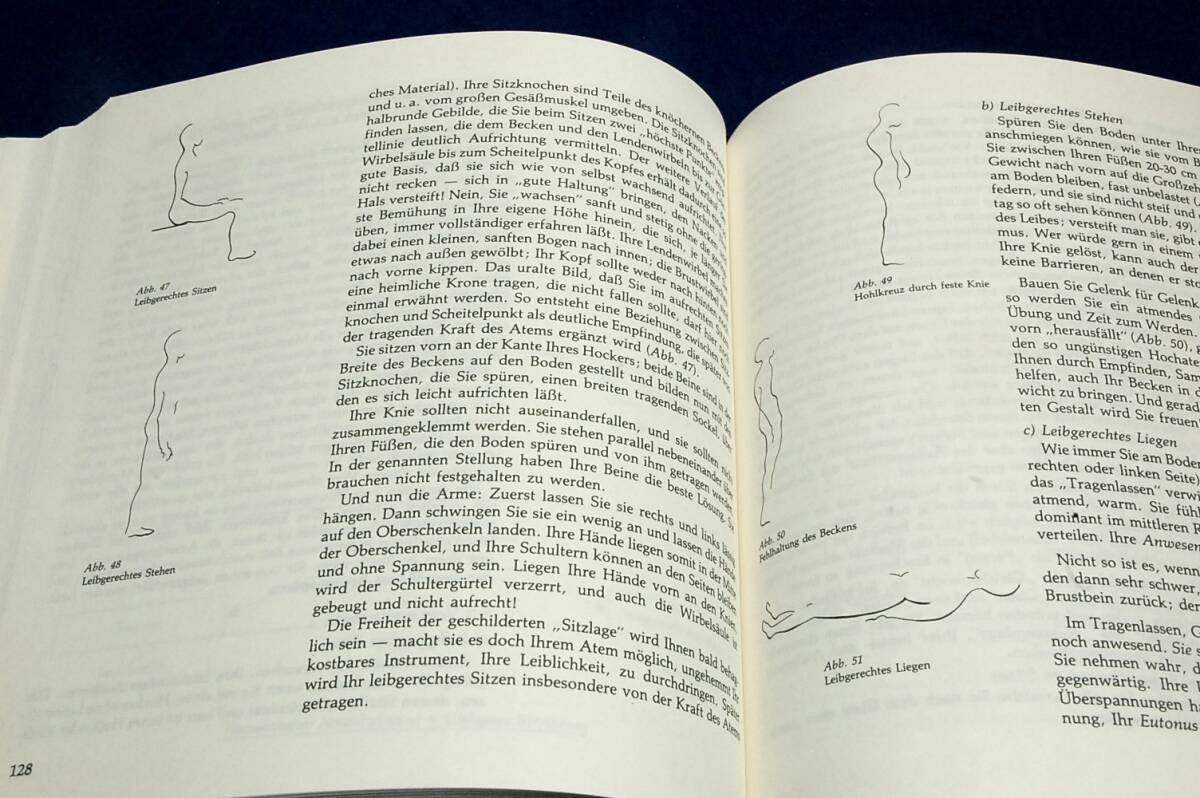 ches Material). Ihre Sitzknochen sind Teile des knöchernen
und u. a. vom großen Gesäßmuskel umgeben. Die Sitzknochen
halbrunde Gebilde, die Sie beim Sitzen zwei „höchste Punkte"
finden lassen, die dem Becken und den Lendenwirbeln bis zur
tellinie deutlich Aufrichtung vermitteln. Der weitere Verlauf
Wirbelsäule bis zum Scheitelpunkt des Kopfes erhält dadurch
gute Basis, daß sie sich wie von selbst wachsend aufrichtet
nicht recken — sich in „gute Haltung" bringen, den Nacken
Hals versteift! Nein, Sie „wachsen" sanft und stetig ohne die
ste Bemühung in Ihre eigene Höhe hinein, die sich, je länger
üben, immer vollständiger erfahren läßt. Ihre Lendenwirbel
dabei einen kleinen, sanften Bogen nach innen; die Brustwirbel
etwas nach außen gewölbt; Ihr Kopf sollte weder nach hinten
nach vorne kippen. Das uralte Bild, daß Sie im aufrechten
eine heimliche Krone tragen, die nicht fallen sollte, darf hier
einmal erwähnt werden. So entsteht eine Beziehung zwischen
knochen und Scheitelpunkt als deutliche Empfindung, die später
der tragenden Kraft des Atems ergänzt wird (Abb. 47).
Sie sitzen vorn an der Kante Ihres Hockers; beide Beine sind in der
Breite des Beckens auf den Boden gestellt und bilden nun mit den
Sitzknochen, die Sie spüren, einen breiten tragenden Sockel, über
den es sich leicht aufrichten läßt.
Ihre Knie sollten nicht auseinanderfallen, und sie sollten nicht
zusammengeklemmt werden. Sie stehen parallel nebeneinander über
Ihren Füßen, die den Boden spüren und von ihm getragen werden.
In der genannten Stellung haben Ihre Beine die beste Lösung. Sie
brauchen nicht festgehalten zu werden.
Und nun die Arme: Zuerst lassen Sie sie rechts und links lässig
hängen. Dann schwingen Sie sie ein wenig an und lassen die Hände
auf den Oberschenkeln landen. Ihre Hände liegen somit in der Mitte
der Oberschenkel, und Ihre Schultern können an den Seiten bleiben
und ohne Spannung sein. Liegen Ihre Hände vorn an den Knien,
wird der Schultergürtel verzerrt, und auch die Wirbelsäule ist
gebeugt und nicht aufrecht!
Die Freiheit der geschilderten „Sitzlage" wird Ihnen bald behag-
lich sein — macht sie es doch Ihrem Atem möglich, ungehemmt Ihr
kostbares Instrument, Ihre Leiblichkeit, zu durchdringen. Später
wird Ihr leibgerechtes Sitzen insbesondere von der Kraft des Atems
getragen.
Abb. 47
Leibgerechtes Sitzen
Abb. 48
Leibgerechtes Stehen
128
b) Leibgerechtes Stehen
Spüren Sie den Boden unter Ihren
anschmiegen können, wie sie vom B
Sie zwischen Ihren Füßen 20-30 cm
Gewicht nach vorn auf die Großzeh
am Boden bleiben, fast unbelastet
federn, und sie sind nicht steif und
tag so oft sehen können (Abb. 49).
des Leibes; versteift man sie, gibt
mus. Wer würde gern in einem
Ihre Knie gelöst, kann auch der
keine Barrieren, an denen er sto
Bauen Sie Gelenk für Gelenk
so werden Sie ein atmendes
Übung und Zeit zum Werden
vorn „herausfällt" (Abb. 50), g
den so ungünstigen Hochate
Ihnen durch Empfinden, Sam
helfen, auch Ihr Becken in d
wicht zu bringen. Und gerad
ten Gestalt wird Sie freuen
c) Leibgerechtes Liegen
Wie immer Sie am Boden
rechten oder linken Seite)
das „Tragenlassen" verwi
atmend, warm. Sie fühl
dominant im mittleren R
verteilen. Ihre Anwesen
Nicht so ist es, wenn
den dann sehr schwer,
Brustbein zurück; der
Im Tragenlassen, G
noch anwesend. Sie s
Sie nehmen wahr, d
gegenwärtig. Ihre
Überspannungen ha
nung, Ihr Eutonus
Abb. 49
Hohlkreuz durch feste Knie
Abb. 50
Fehlhaltung des Beckens
Abb. 51
Leibgerechtes Liegen